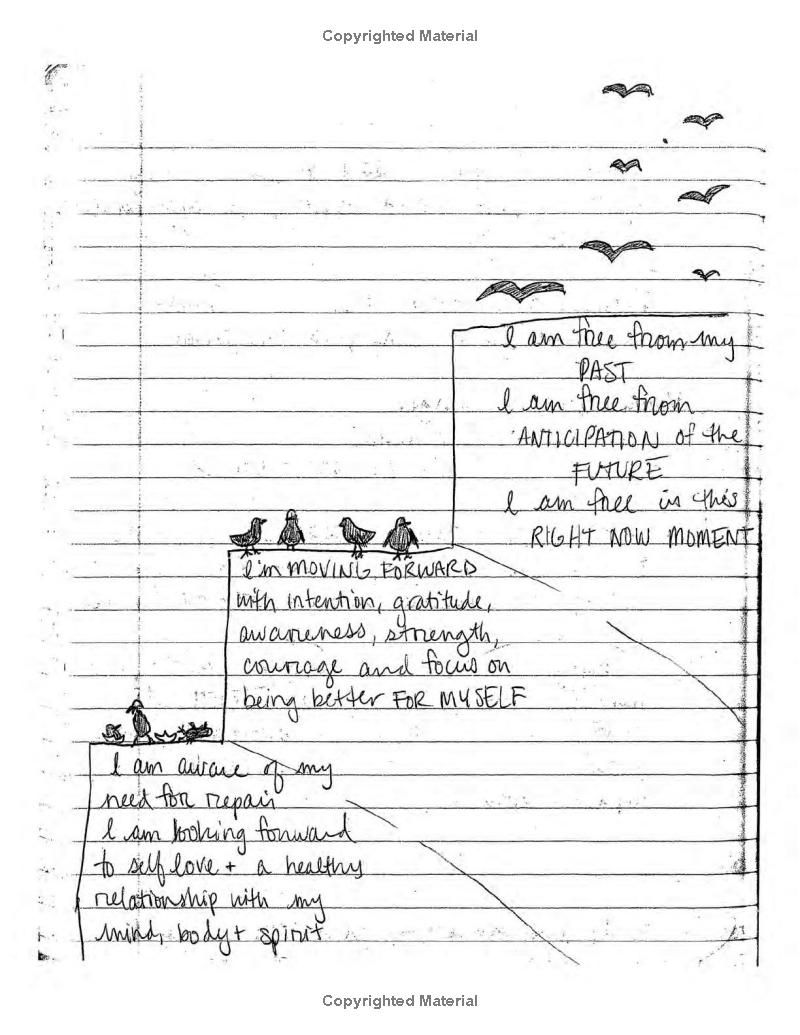 Copyrighted Material
I am free from my
PAST
I am free from
ANTICIPATION of the
FUTURE
I am free in this
RIGHT NOW MOMENT
I'm MOVING FORWARD
with intention, gratitude,
awareness, strength,
courage and focus on
being better FOR MYSELF
I am aware of my
need for repair
I am looking forward
to self love + a healthy
relationship with my
mind, body + spirit
Copyrighted Material